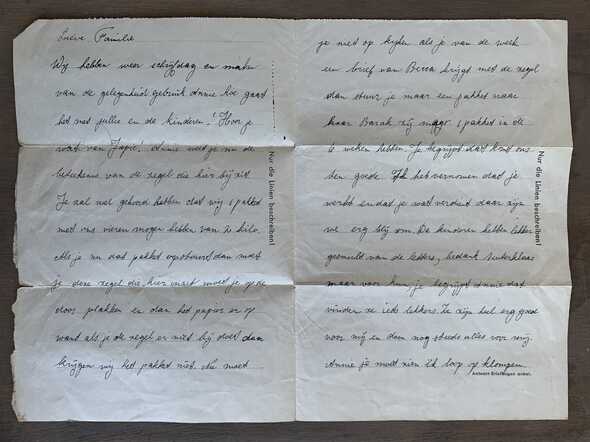 Lieve Familie
Wij hebben weer schrijfdag en maken
van de gelegenheid gebruik Annie hoe gaat
het met jullie en de kinderen! Hoor je
wat van Japie! Annie weet je nu de
beteekenis van de zegel die hier bij zit
Je zal wel gehoord hebben dat wij 1 pakket
met ons vieren mogen hebben van 2 kilo.
Als je nu dat pakket opstuurt dan moet
je deze zegel die hier inzit moet je op de
doos plakken en dan het papier er op
want als je de zegel er niet bij doet dan
krijgen wij het pakket niet. Nu moet
Nur die Linien beschreiben!
je niet op kijken als je van de week
een brief van krijgt met de zegel
dan stuur je maar een pakket naar
haar Barak zij mogen 1 pakket in de
6 weken hebben Je begrijpt dat komt ons
ten goede Ik heb vernomen dat je
werkt en dat je wat verdient daar zijn
we erg blij om. De kinderen hebben lekker
gesmuld van de letters, bedank Sinterklaas
maar voor hun, je begrijpt Annie dat
vinden ze iets lekkers. Ze zijn heel erg goed
voor mij en doen nog steeds alles voor mij.
Annie je moet zien ik loop op klompen.
Nur die Linien beschreiben!